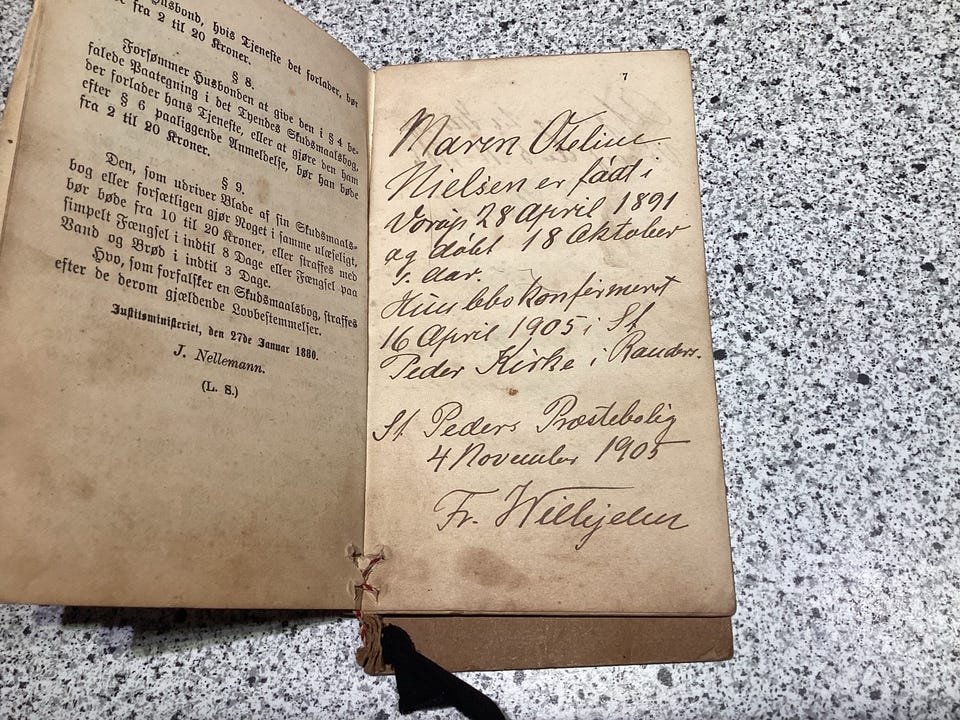 Husbond, hvis Tjeneste det forlader, bør
fra 2 til 20 Kroner.
§ 8.
Forsømmer Husbonden at give den i § 4 be-
falede Paategning i det Tyendes Skudsmaalsbog,
der forlader hans Tjeneste, eller at gjøre den ham
efter § 6 paaliggende Anmeldelse, bør han bøde
fra 2 til 20 Kroner.
§ 9.
Den, som udriver Blade af sin Skudsmaals-
bog eller forsætligen gjør Noget i samme ulæseligt,
bør bøde fra 10 til 20 Kroner, eller straffes med
simpelt Fængsel i indtil 8 Dage eller Fængsel paa
Vand og Brød i indtil 3 Dage.
Hvo, som forfalsker en Skudsmaalsbog, straffes
efter de derom gjældende Lovbestemmelser.
Justitsministeriet, den 27de Januar 1880.
J. Nellemann.
(L. S.)
7
Maren Oteline
Nielsen er født i
Vorup 28 April 1891
og døbt 18 Oktober
s. aar.
Hun blev konfirmeret
16 April 1905 i St
Peder Kirke i Randers.
St. Peders Præstebolig
4 November 1905
Fr. Wilhjelm